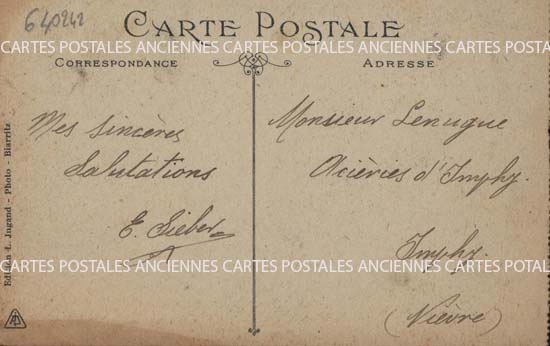 640242
CARTE POSTALE
CARTES POSTALES ANCIENNES CARTES POSTALES ANCIENNES CARTES POSTALES
CORRESPONDANCE
ADRESSE
Mes sincères
Salutations
E. Sieber
Monsieur Lenugue
Acièries d'Imphy.
Imphy.
(Nièvre)
CARTES POSTALES ANCIENNES CARTES POSTALES ANCIENNES CARTES POSTALES
Edition L. Jugand - Photo - Biarritz